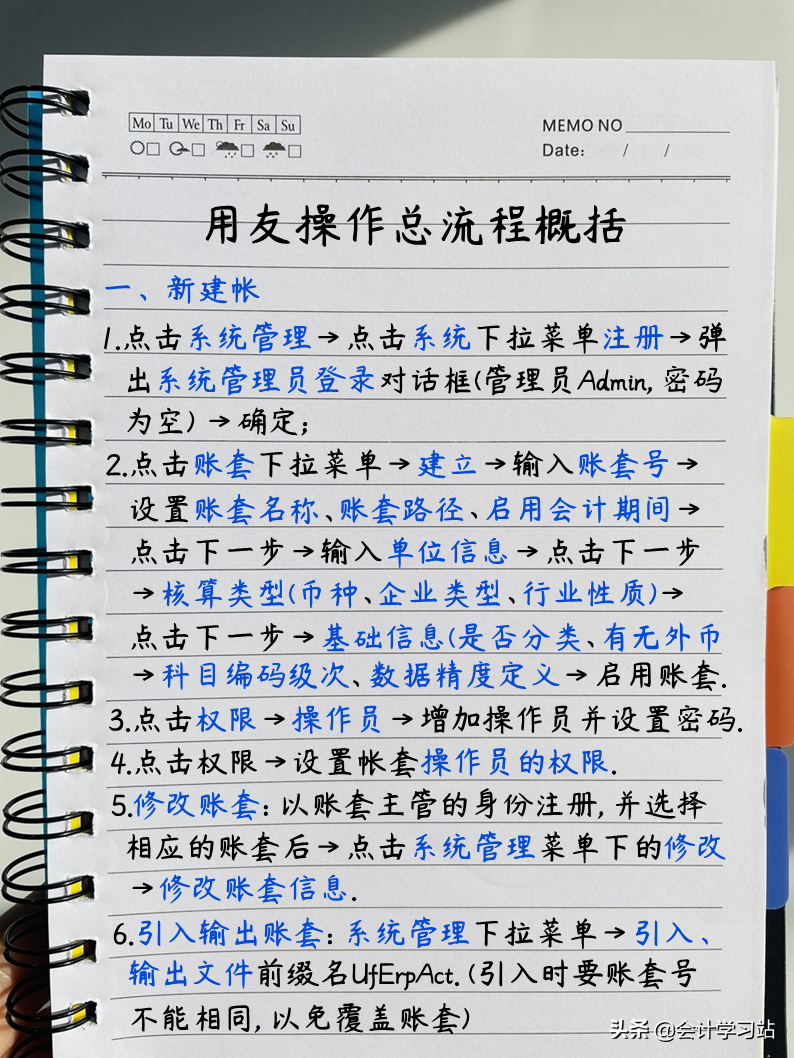 Mo Tu We Th Fr Sa Su
MEMO NO
Date: / /
用友操作总流程概括
一、新建帐
1.点击系统管理→点击系统下拉菜单注册→弹
出系统管理员登录对话框(管理员Admin,密码
为空)→确定;
2.点击账套下拉菜单→建立→输入账套号→
设置账套名称、账套路径、启用会计期间→
点击下一步→输入单位信息→点击下一步
→核算类型(币种、企业类型、行业性质)→
点击下一步→基础信息(是否分类、有无外币
→科目编码级次、数据精度定义→启用账套.
3.点击权限→操作员→增加操作员并设置密码.
4.点击权限→设置帐套操作员的权限.
5.修改账套:以账套主管的身份注册,并选择
相应的账套后→点击系统管理菜单下的修改
→修改账套信息.
6.引入输出账套:系统管理下拉菜单→引入、
输出文件前缀名UfErpAct.(引入时要账套号
不能相同,以免覆盖账套)
头条 @会计学习站